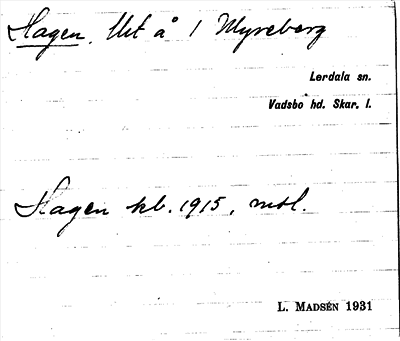 Hagen. Ut å 1 Myreberg
Lerdala sn.
Vadsbo hd. Skar. l.
Hagen kb. 1915, mtl.
L. MADSÉN 1931